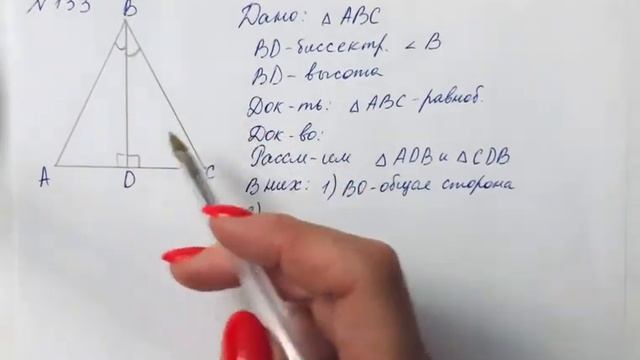 N 133
B
A
D
C
Дано: △ ABC
BD-биссектр. ∠ B
BD-высота
Док-ть: △ABC-равноб.
Док-во:
Рассм-им △ADB и △CDB
В них: 1) BD-общая сторона
2)